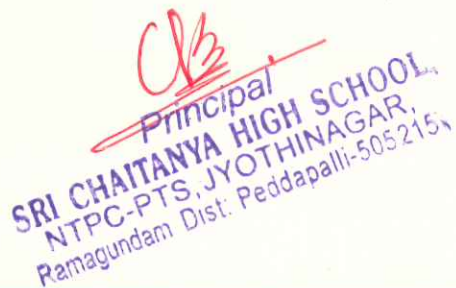 Principal
SRI CHAITANYA HIGH SCHOOL,
NTPC-PTS, JYOTHINAGAR,
Ramagundam Dist: Peddapalli-505 215.